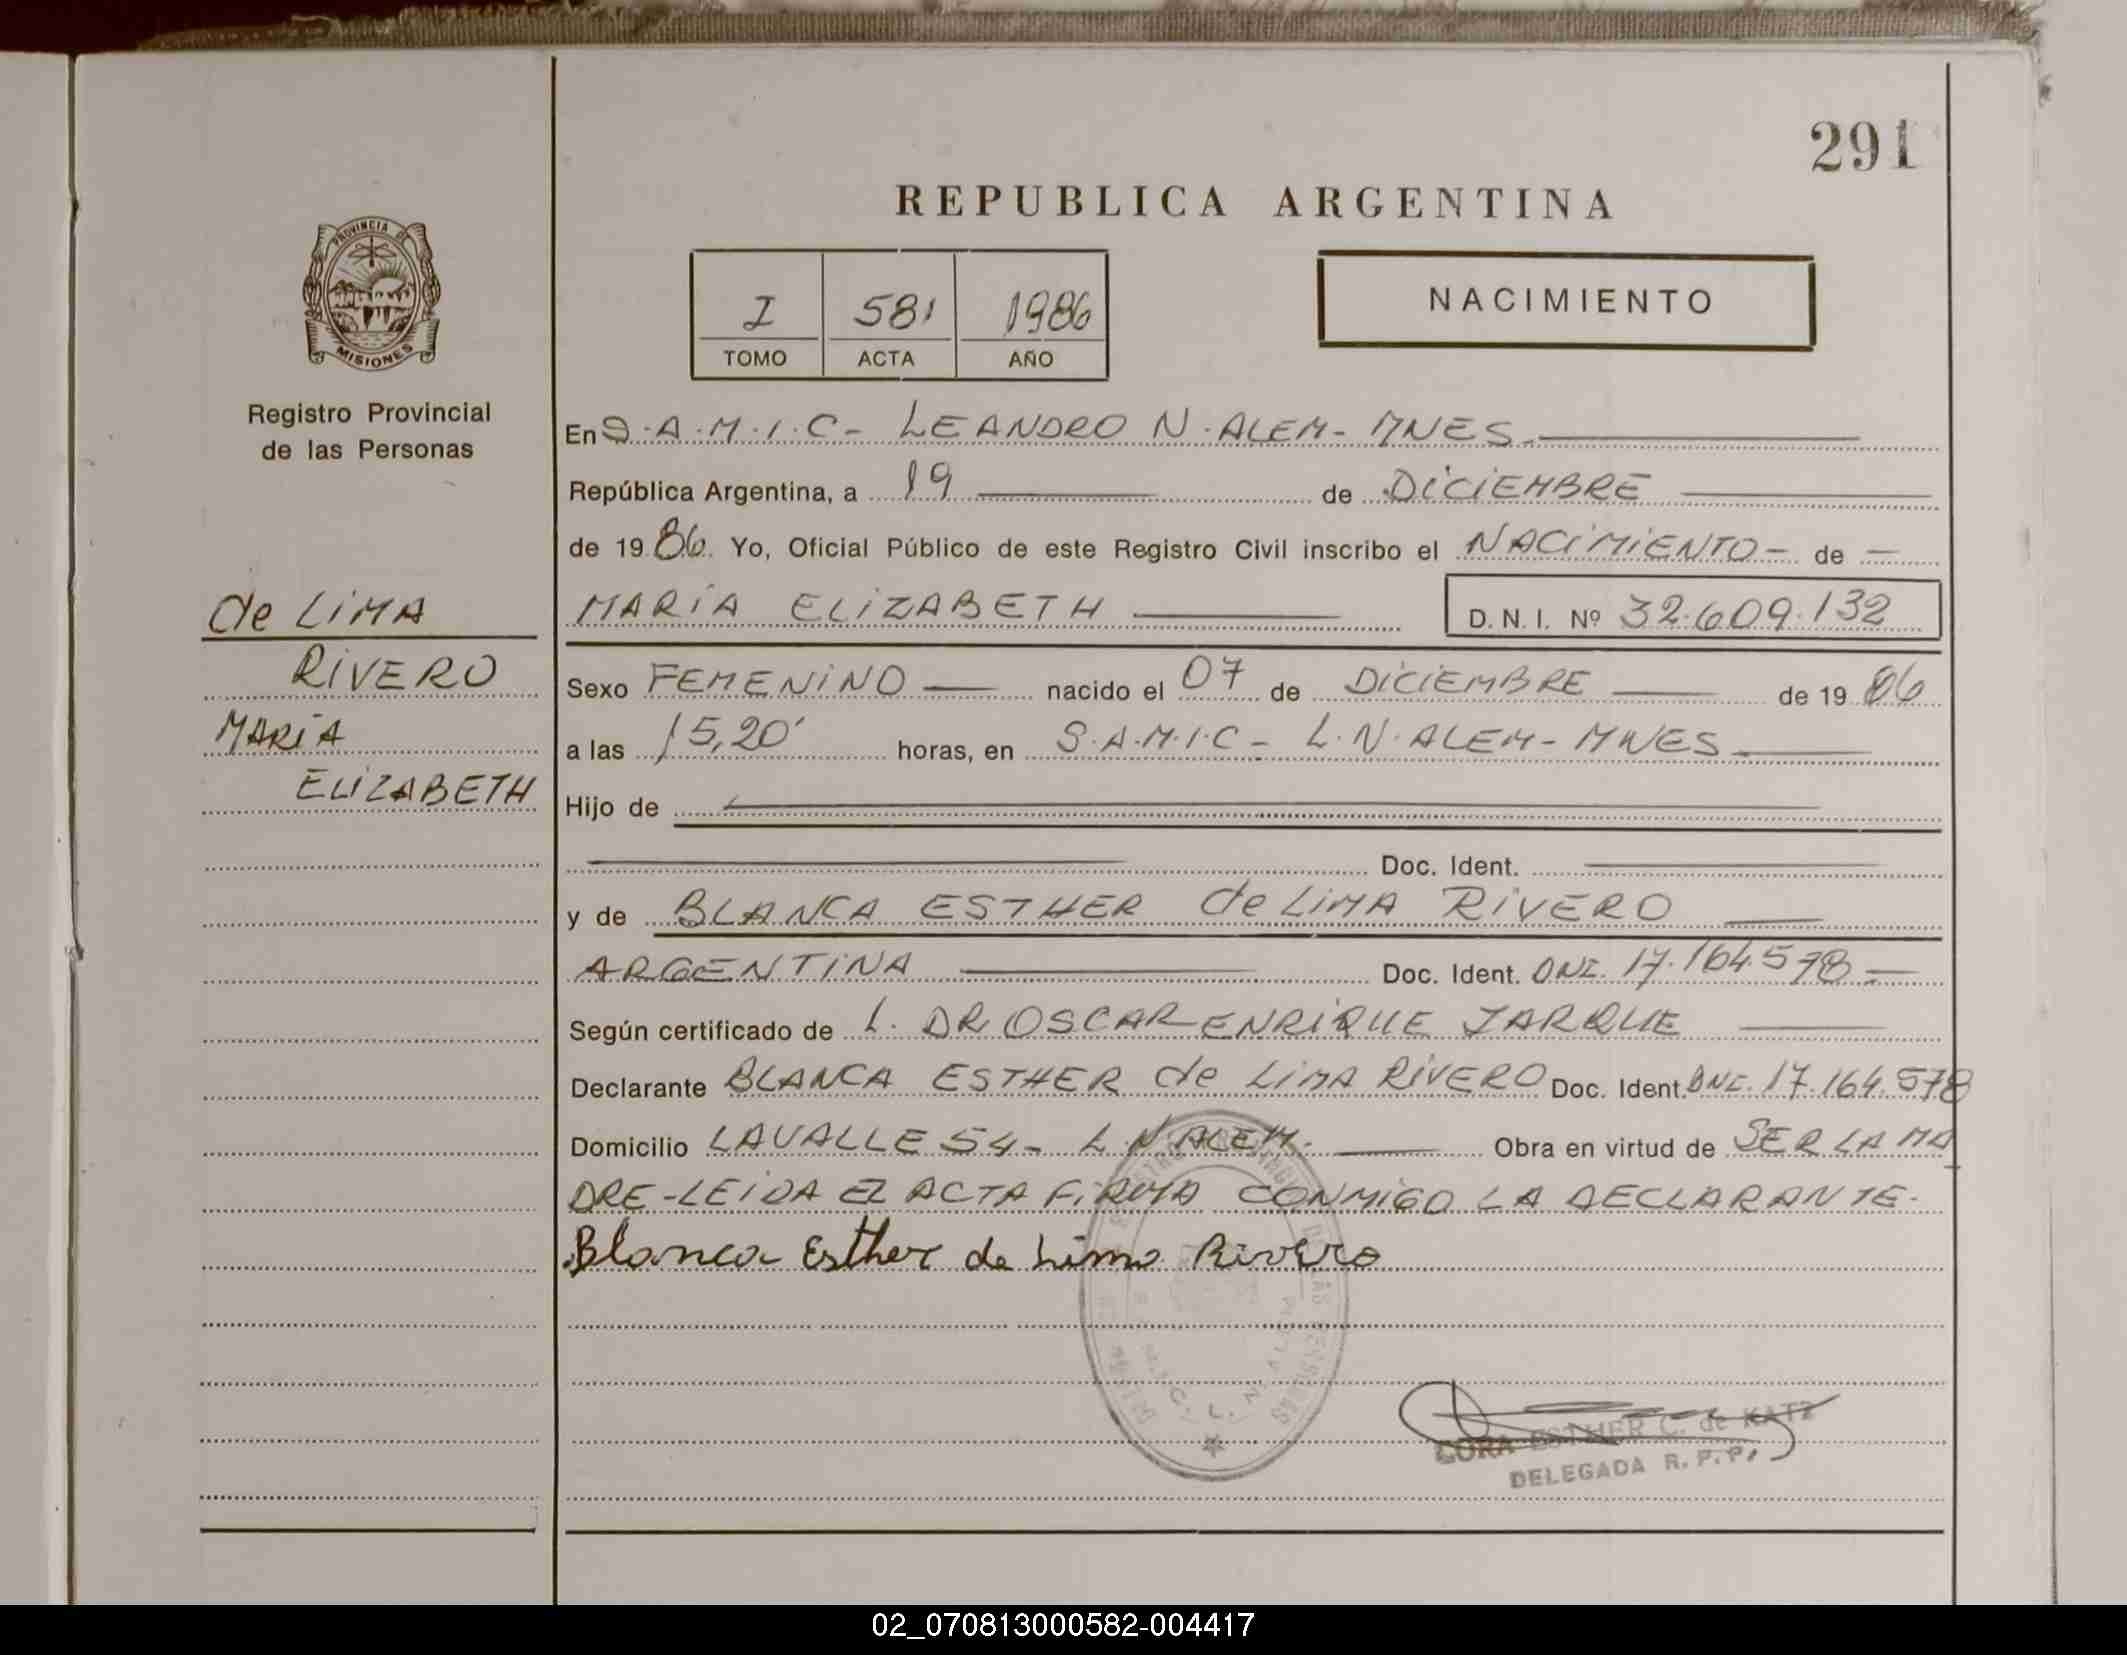 291
REPUBLICA ARGENTINA
PROVINCIA DE
MISIONES
I 581 1986
TOMO ACTA AÑO
NACIMIENTO
Registro Provincial
de las Personas
de LiMA
RIVERO
MARÍA
ELIZABETH
En S.A.M.I.C- LEANDRO N.ALEM- MNES.
República Argentina, a 19 de DICIEMBRE
de 1986. Yo, Oficial Público de este Registro Civil inscribo el NACIMIENTO- de -
MARÍA ELIZABETH D.N.I. Nº 32.609.132
Sexo FEMENINO nacido el 07 de DICIEMBRE de 1986
a las 15,20' horas, en S.A.M.I.C- L.N.ALEM- MNES
Hijo de
Doc. Ident.
y de BLANCA ESTHER de LIMA RIVERO
ARGENTINA Doc. Ident. DNI. 17.164.578-
Según certificado de L. DR OSCAR ENRIQUE JARQUE
Declarante BLANCA ESTHER de LIMA RIVERO Doc. Ident. DNI. 17.164.578
Domicilio LAVALLE 54- L.N ALEM. Obra en virtud de SER LA MA
DRE-LEIDA EL ACTA FIRMA CONMIGO LA DECLARANTE.
Blanca Esther de Lima Rivero
ESTHER C. de KATZ
DELEGADA R.P.P.
02_070813000582-004417